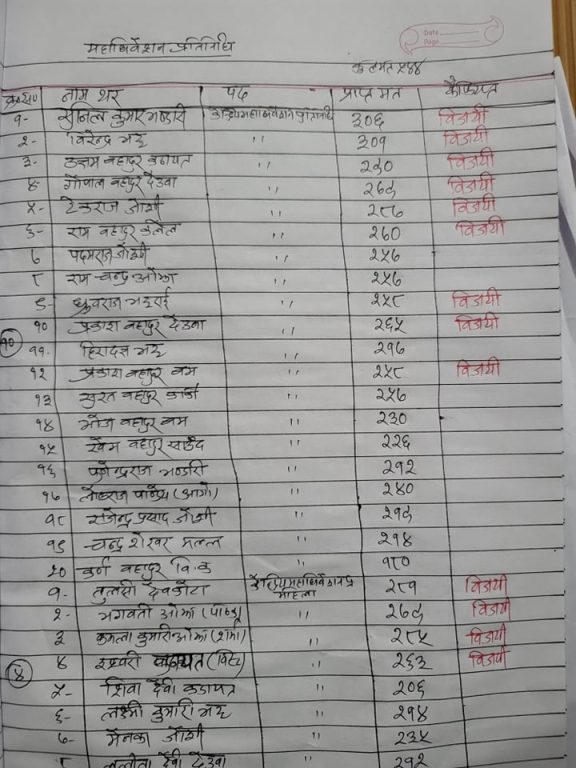 महाधिवेशन प्रतिनिधि
Date
Page
कुलमत ५४४
क्र.सं० नाम थर पद प्राप्त मत कैफियत
१- सुनिल कुमार भण्डारी केन्द्रिय महाधिवेशन प्रतिनिधि ३०६ विजयी
२- विरेन्द्र भट्ट ,, ३०१ विजयी
३- उत्तम बहादुर कठायत ,, २८० विजयी
४- गोपाल बहादुर देउवा ,, २६९ विजयी
५- टेकराज जोशी ,, २८७ विजयी
६- राम बहादुर ,, २६० विजयी
७ पदमराज जोशी ,, २५७
८ राम चन्द्र ओझा ,, २५७
९- ध्रुवराज भट्टराई ,, २५८ विजयी
१० प्रकाश बहादुर देउवा ,, २६५ विजयी
१०
११- हिरादत्त भट्ट ,, २१७
१२ प्रकाश बहादुर बम ,, २५८ विजयी
१३ सुरत बहादुर कार्की ,, २५७
१४ भोज बहादुर बम ,, २३०
१५ खेम बहादुर साउँद ,, २२६
१६ पुर्णेन्द्रराज भण्डारी ,, २१२
१७ लोकराज पाण्डेय (आगो) ,, २४०
१८ राजेन्द्र प्रसाद जोशी ,, २१९
१९ चन्द्र शेखर मल्ल ,, २१४
२० कर्ण बहादुर वि.क ,, १८०
१- तुलसी देवकोटा केन्द्रिय महाधिवेशन प्र महिला २८१ विजयी
२- भगवती ओझा (पाण्डु) ,, २६९ विजयी
३ कमला कुमारी ओझा (शर्मा) ,, २८५ विजयी
४ इश्वरी कठायत (विष्ट) ,, २६३ विजयी
४
५- शिवा देवी कठायत ,, २०६
६- लक्ष्मी कुमारी भट्ट ,, २१४
७- मेनका जोशी ,, २३५
८ ललीता देवी देउवा ,, २१२